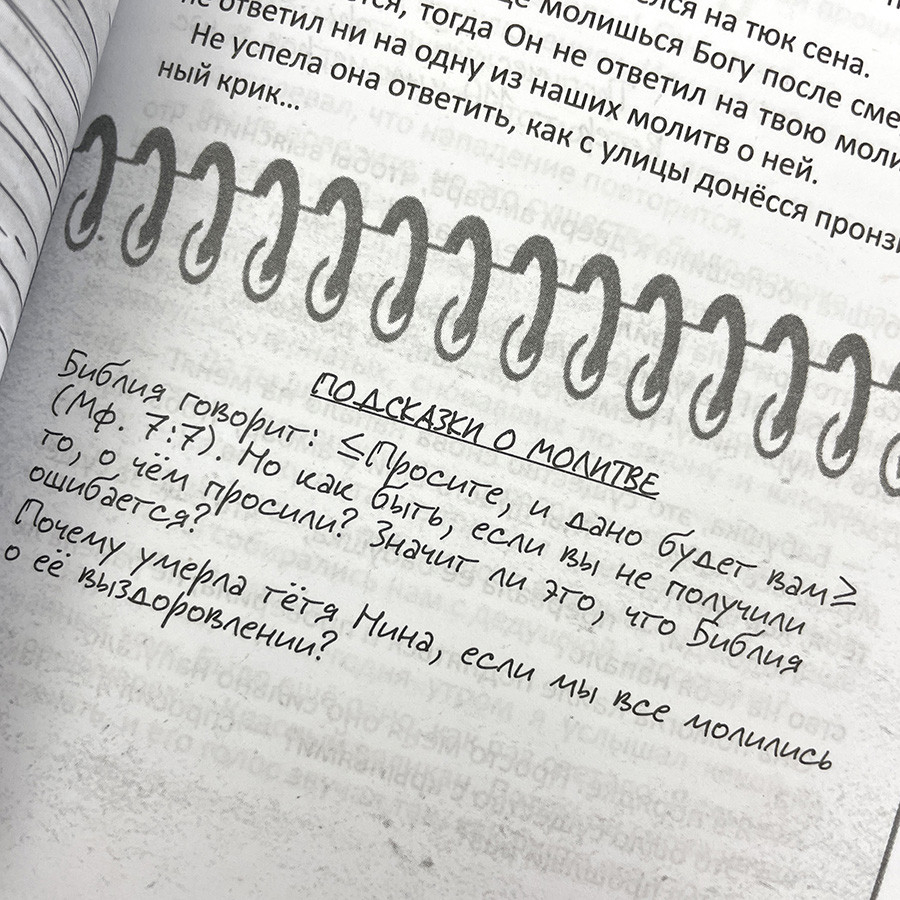 на тюк сена.
молишься Богу после
тогда Он не ответил на твою
не ответил ни на одну из наших молитв о ней.
Не успела она ответить, как с улицы донёсся
ный крик...
ПОДСКАЗКИ О МОЛИТВЕ
Библия говорит: ≤Просите, и дано будет вам≥
(Мф. 7:7). Но как быть, если вы не получили
то, о чём просили? Значит ли это, что Библия
ошибается?
Почему умерла тётя Нина, если мы все молились
о её выздоровлении?